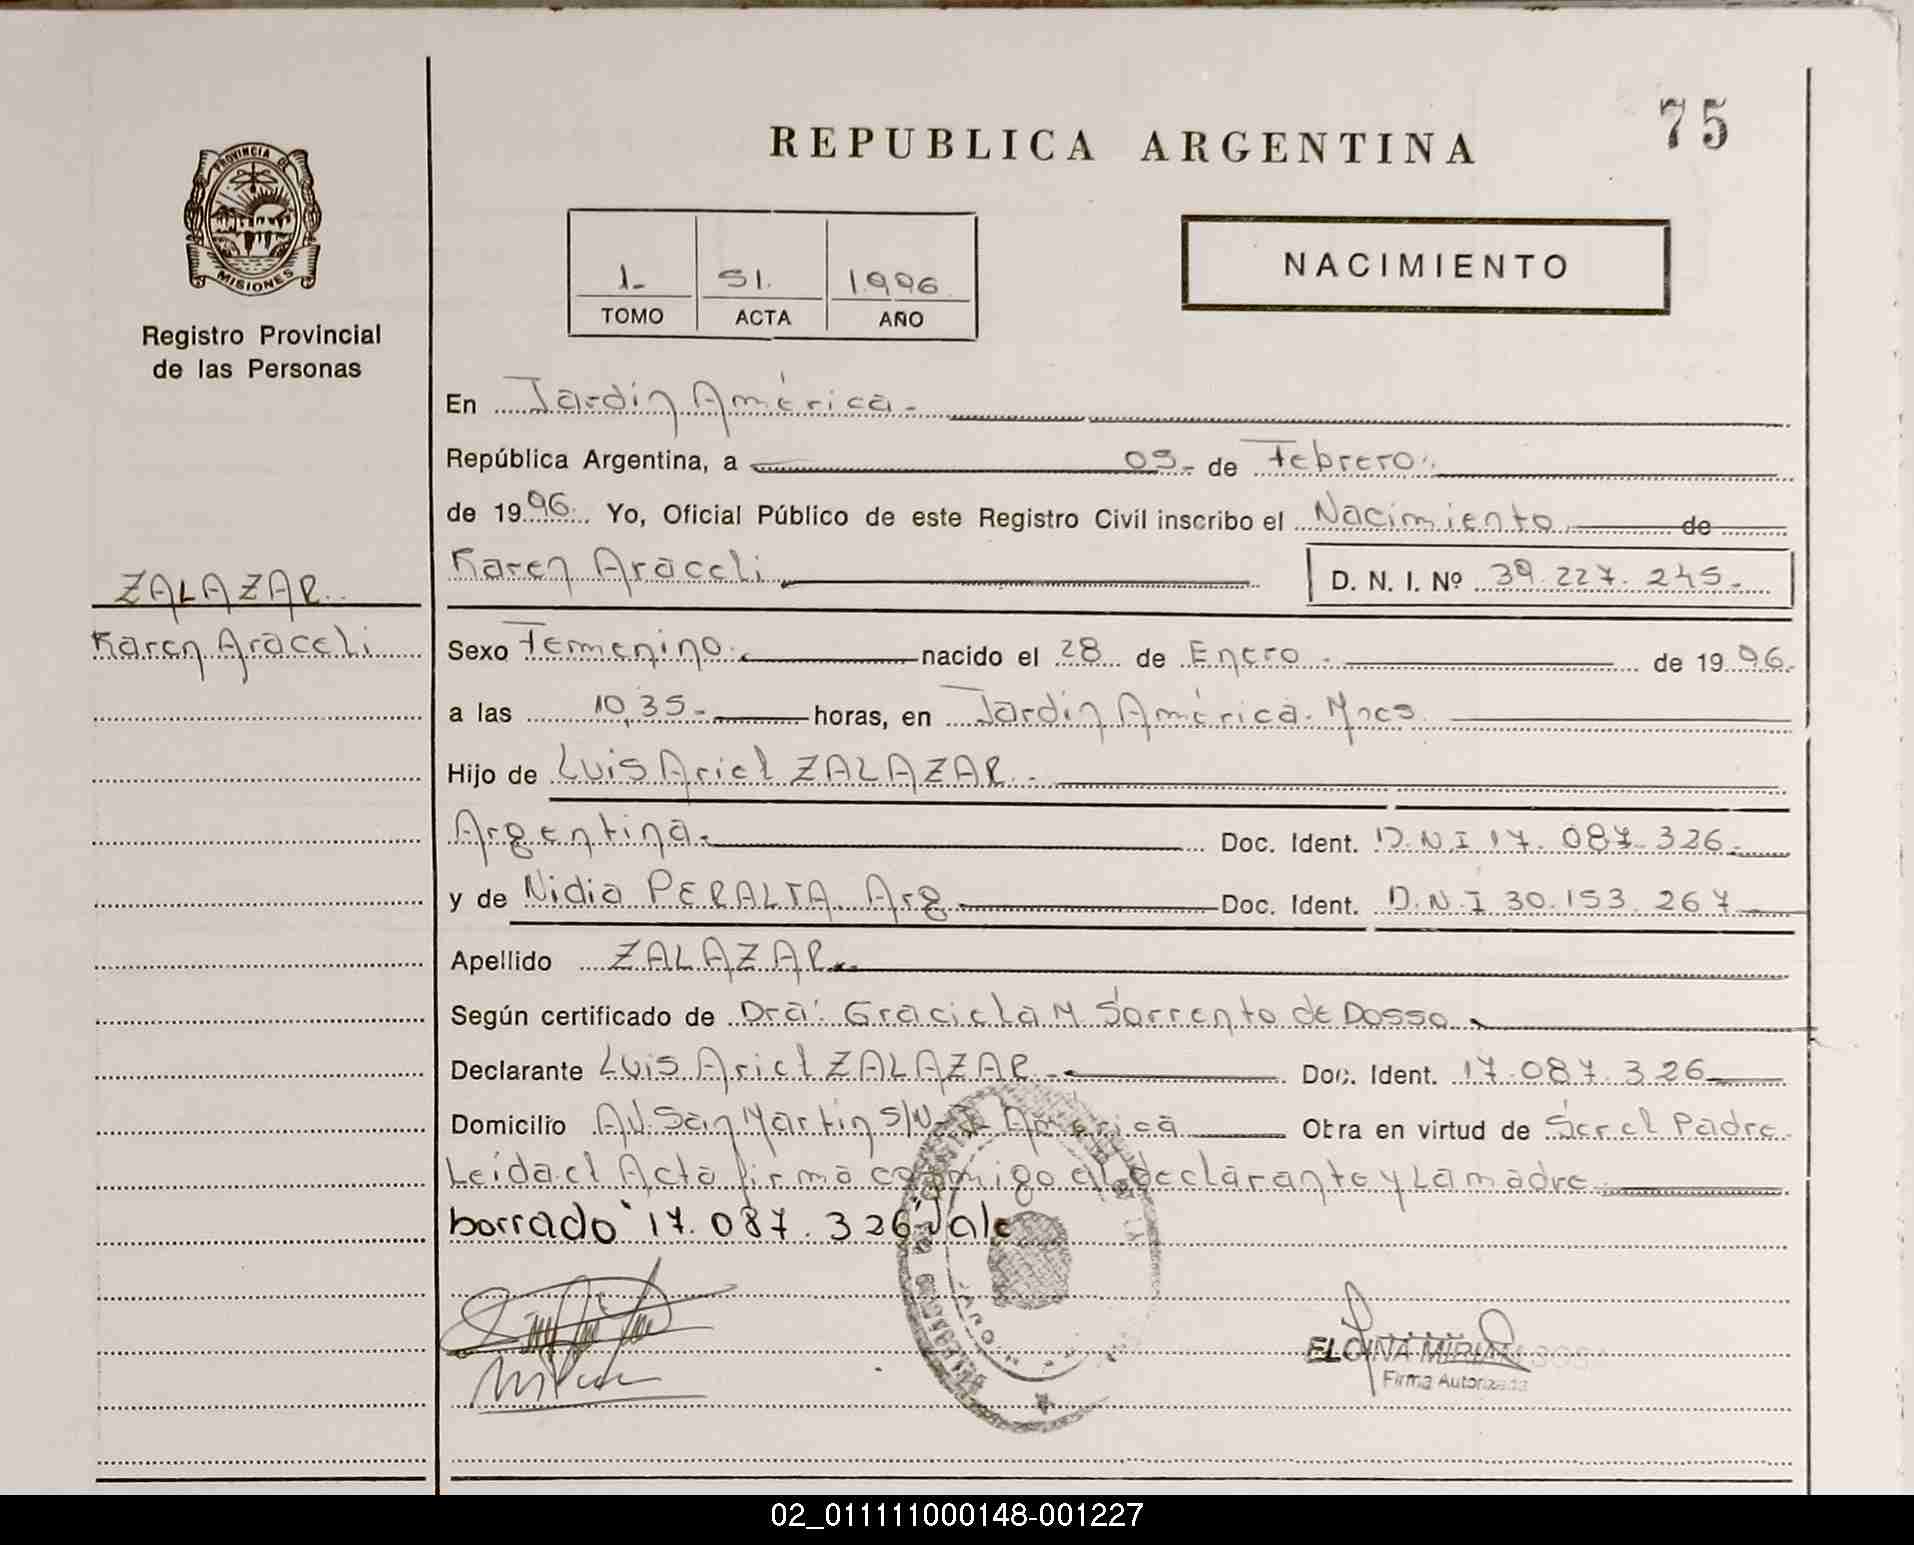 75
REPUBLICA ARGENTINA
PROVINCIA DE
MISIONES
Registro Provincial
de las Personas
NACIMIENTO
1- 51. 1996
TOMO ACTA AÑO
En Jardín América.-
República Argentina, a 09- de Febrero.
de 1996. Yo, Oficial Público de este Registro Civil inscribo el Nacimiento de
Karen Araceli D. N. I. Nº 39.227.245.-
ZALAZAR.
Karen Araceli
Sexo Femenino.- nacido el 28 de Enero.- de 1996.
a las 10,35- horas, en Jardín América. Mnes
Hijo de Luis Ariel ZALAZAR.-
Argentina.- Doc. Ident. D.N.I 17.087.326.-
y de Nidia PERALTA Arg.- Doc. Ident. D.N.I 30.153.267-
Apellido ZALAZAR.-
Según certificado de Dra: Graciela M Sorrento de Dosso
Declarante Luis Ariel ZALAZAR.- Doc. Ident. 17.087.326
Domicilio AV. San Martin S/N- J. América Obra en virtud de Ser el Padre-
Leída el Acta firma conmigo el declarante y La madre
borrado "17.087.326" Vale
ELCINA MIRIAM
Firma Autorizada
02_011111000148-001227